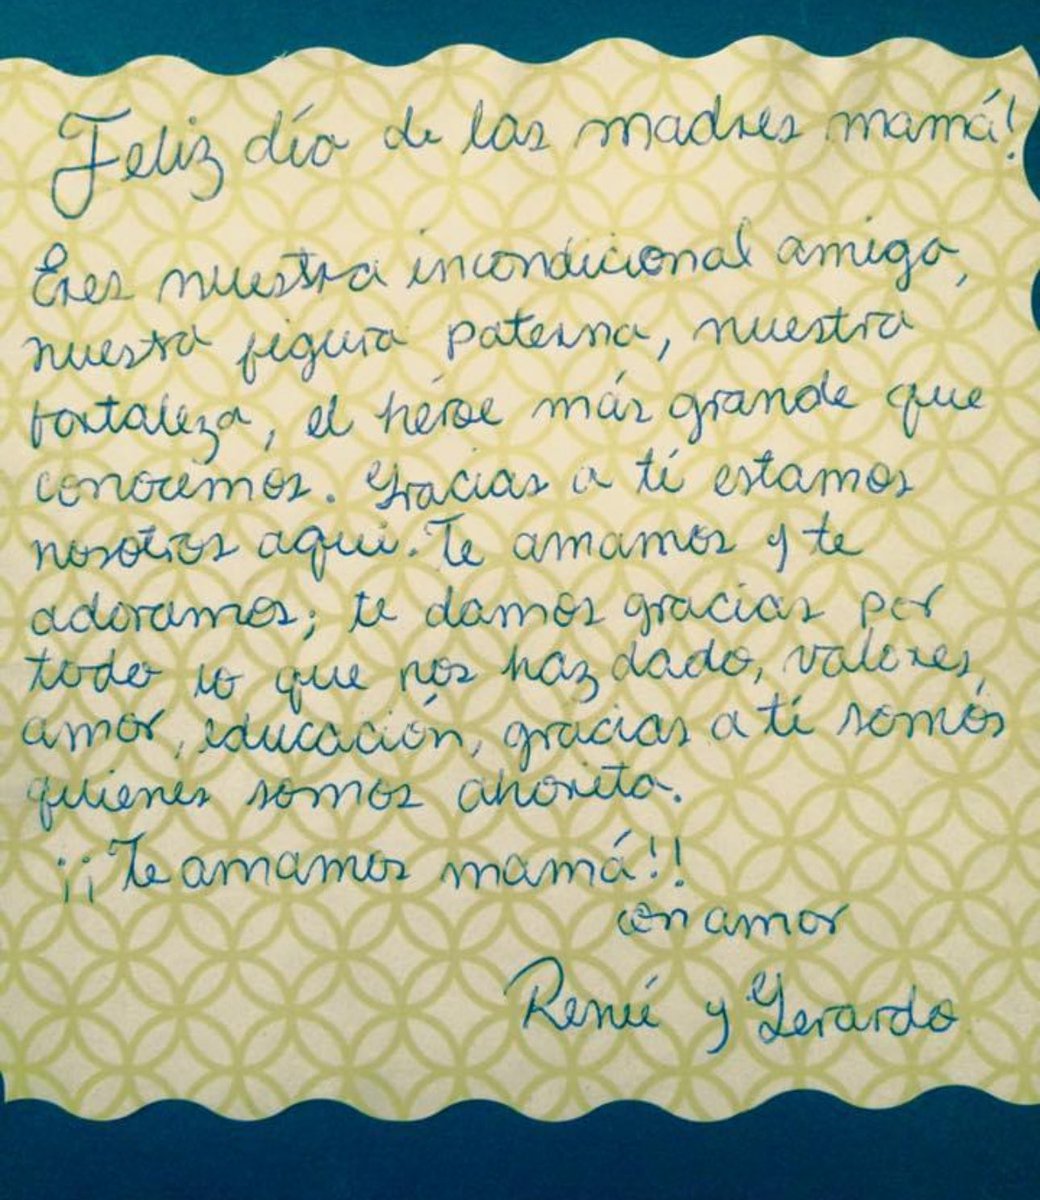 Feliz día de las madres mamá!
Eres nuestra incondicional amiga,
nuestra figura paterna, nuestra
fortaleza, el héroe más grande que
conocemos. Gracias a tí estamos
nosotros aquí. Te amamos y te
adoramos; te damos gracias por
todo lo que nos haz dado, valores,
amor, educación, gracias a tí somos
quienes somos ahorita.
¡¡Te amamos mamá!!
con amor
Reneé y Gerardo